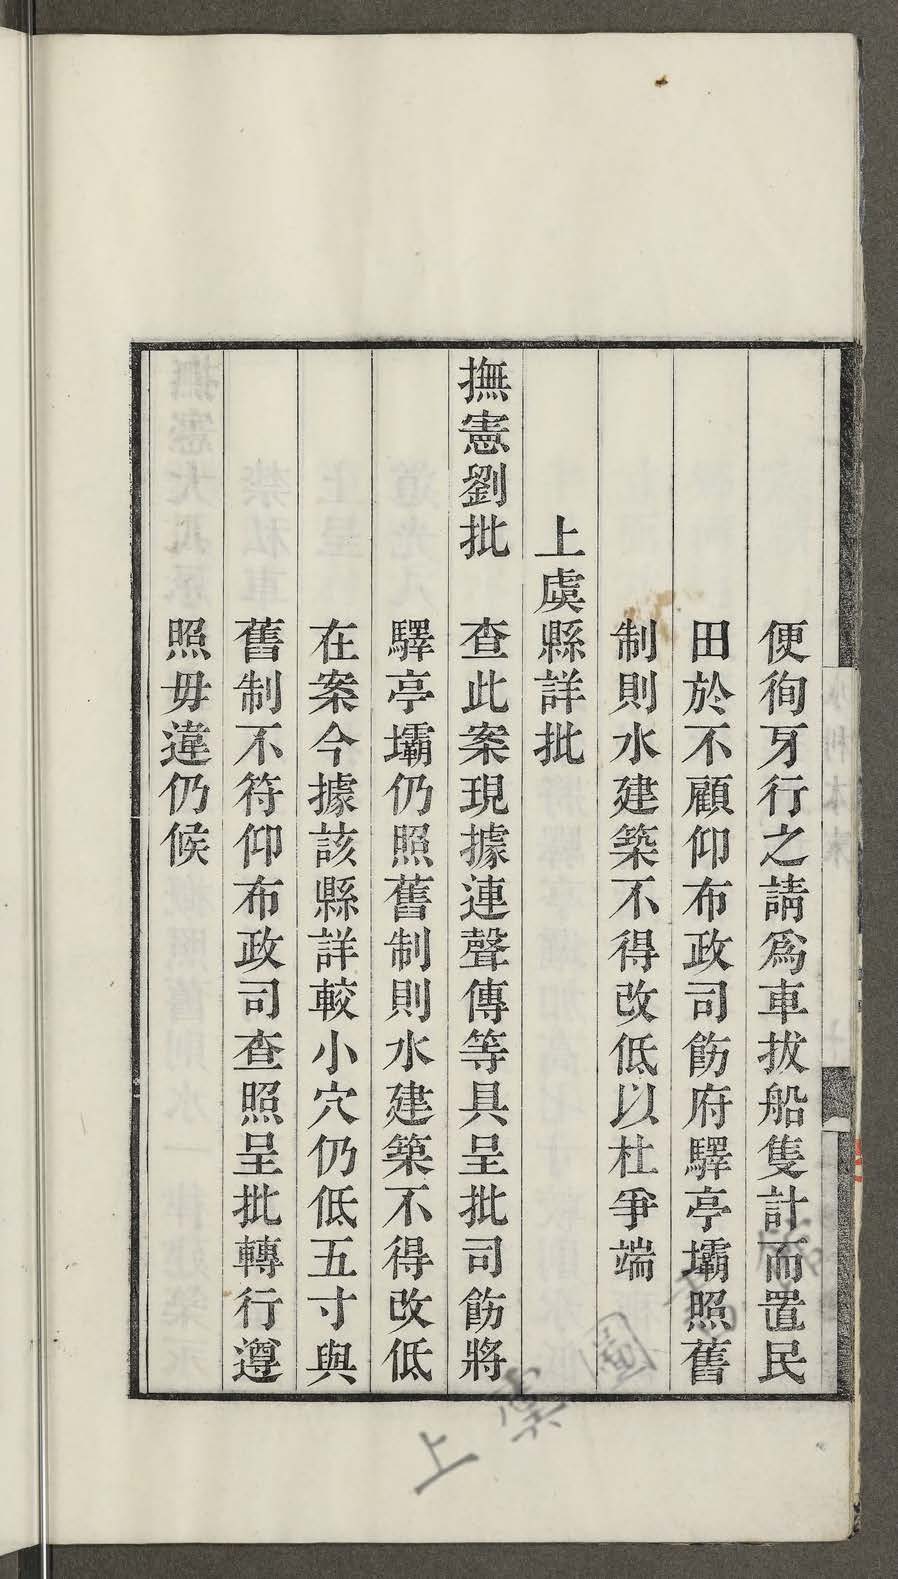 便徇牙行之請爲車拔船隻計而置民
田於不顧仰布政司飭府驛亭壩照舊
制則水建築不得改低以杜爭端
上虞縣詳批
撫憲劉批　查此案現據連聲傳等具呈批司飭將
驛亭壩仍照舊制則水建築不得改低
在案今據該縣詳較小穴仍低五寸與
舊制不符仰布政司查照呈批轉行遵
照毋違仍候
上虞圖書館